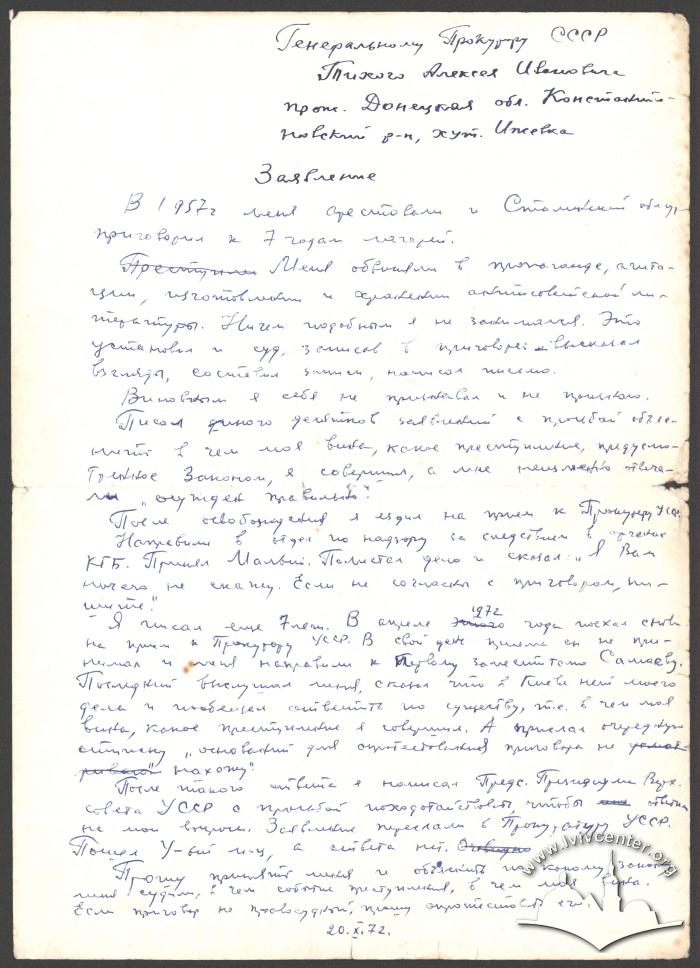 Генеральному Прокурору СССР
Тихого Алексея Ивановича
прож. Донецкая обл. Константи-
новский р-н, хут. Ижевка
Заявление
В 1957г меня арестовали и Сталинский облсуд
приговорил к 7 годам лагерей.
Преступни Меня обвиняли в пропаганде, агита-
ции, изготовлении и хранении антисоветской ли-
тературы. Ничем подобным я не занимался. Это
установил и суд, записав в приговоре: „высказал
взгляды, составил записи, написал письмо.
Виновным я себя не признавал и не признаю.
Писал много десятков заявлений с просьбой объяс-
нить в чем моя вина, какое преступление, предусмо-
тренное Законом, я совершил, а мне неизменно отвеча-
ли „осужден правильно".
После освобождения я ездил на прием к Прокурору УССР.
Направили в отдел по надзору за следствием в органах
КГБ. Принял Малый. Полистал дело и сказал: „Я Вам
ничего не скажу. Если не согласны с приговором, пи-
шите."
Я писал еще 7 лет. В апреле этого 1972 года поехал снова
на прием к Прокурору УССР. В свой день приема он не при-
нимал и меня направили к Первому заместителю
Последний выслушал меня, сказал что в Киеве нет моего
дела и пообещал ответить по существу, т.е. в чем моя
вина, какое преступление я совершил. А прислал очередную
отписку „оснований для опротестования приговора не усмат-
риваю нахожу".
После такого ответа я написал Предс. Президиума Верх.
совета УССР с просьбой походатайствовать, чтобы мне ответили
на мои вопросы. Заявление переслали в Прокуратуру УССР.
Пошел V-ый м-ц, а ответа нет. Очевидно
Прошу принять меня и объяснить по какому закону
меня судили, в чем событие преступления, в чем моя вина.
Если приговор не правосудный, прошу опротестовать его.
20.XI.72.
www.lvivcenter.org